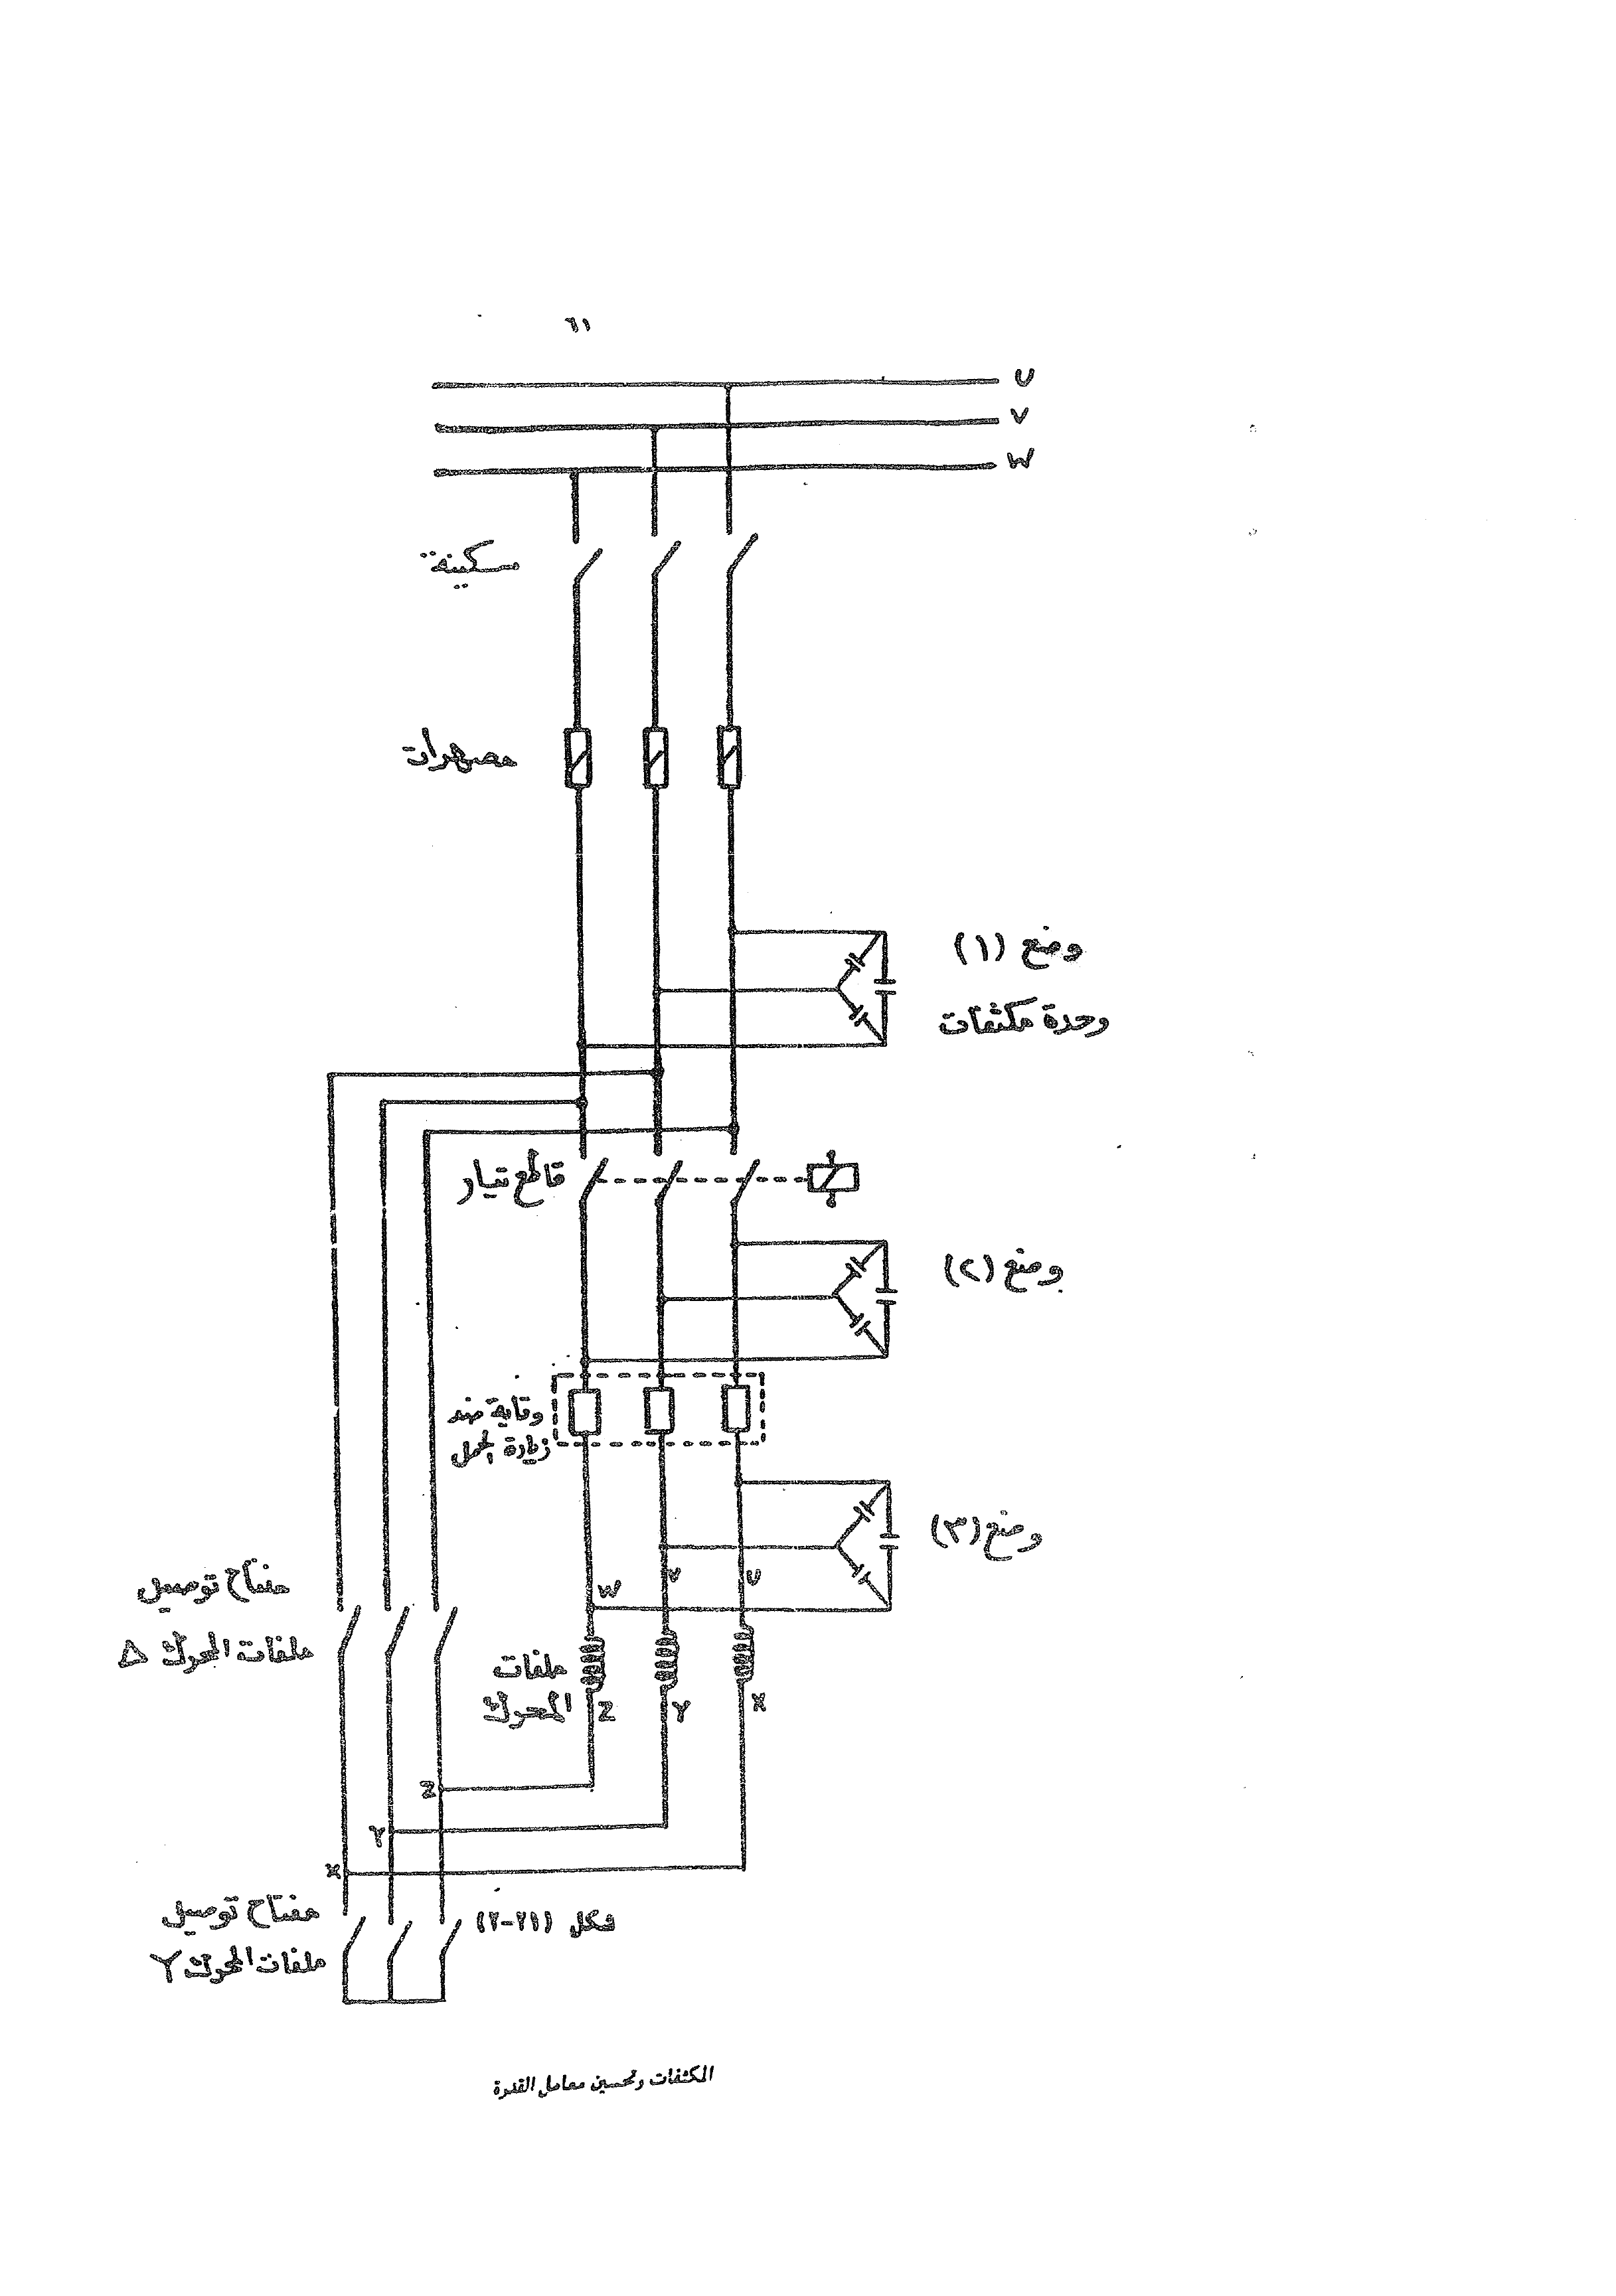 ٦١
U
V
W
سكينة
مصهرات
وضع (١)
وحدة مكثفات
قاطع تيار
وضع (٢)
وقاية ضد
زيادة الحمل
وضع (٣)
W V U
مفتاح توصيل
ملفات المحرك Δ
ملفات
المحرك
Z Y X
Z
Y
X
مفتاح توصيل
ملفات المحرك Y
شكل (٢١-٢)
المكثفات وتحسين معامل القدرة